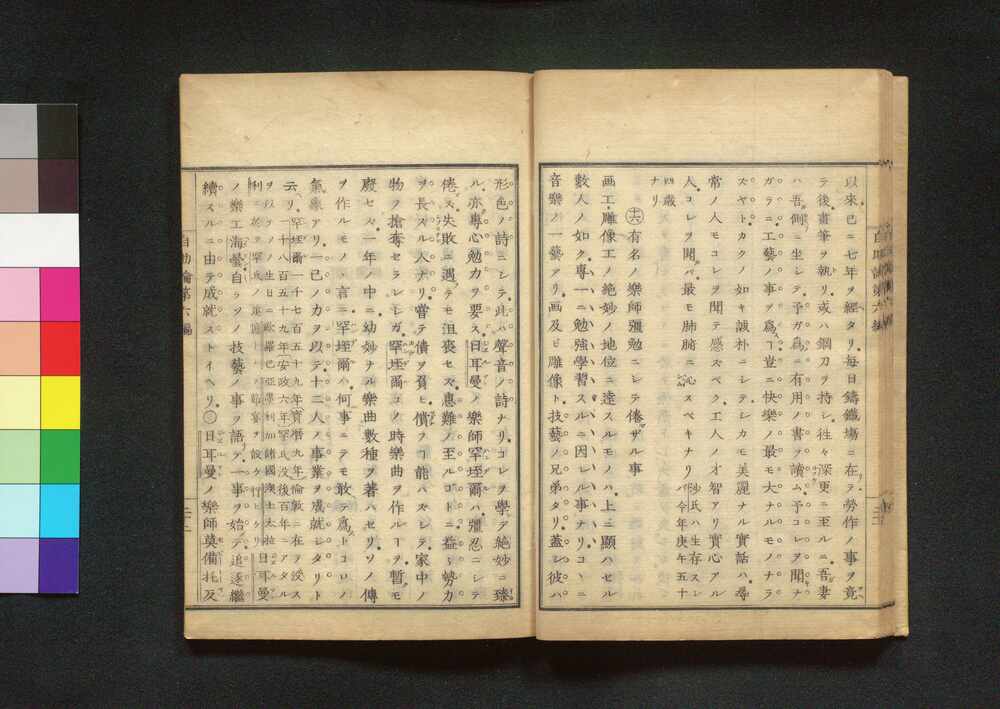 以來已ニ七年ヲ經タリ每日鑄鐵場ニ在テ勞作ノ事ヲ竟
テ後畫筆ヲ執リ或ハ鋼刀ヲ持シ往々深更ニ至ルニ吾妻
ハ吾側ニ坐シテ予ガ爲ニ有用ノ書ヲ讀ム予コレヲ聞ナ
ガラニ工藝ノ事ヲ爲ヿ豈ニ快樂ノ最モ大ナルモノナラ
ズヤトカクノ如キ誠朴ニシテシカモ美麗ナル實話ハ尋
常ノ人モコレヲ聞テ感スベク工人ノオ智アリ實心アル
人コレヲ聞バ最モ肺腑ニ沁スベキナリ 沙氏ハ生存スレバ今年庚午五十
四歳
ナリ
㊅有名ノ樂師彊勉ニシテ倦ザル事
画工雕像工ノ絶妙ノ地位ニ達スルモノハ上ニ顯ハセル
數人ノ如ク專一ニ勉強學習スルニ因レル事ナリコヽニ
音樂ノ一藝アリ画及ビ雕像ト技藝ノ兄弟タリ蓋シ彼ハ
形色ノ詩ニシテ此ハ聲音ノ詩ナリコレヲ學テ絶妙ニ臻
ル亦專心勉力ヲ要ス日耳曼ノ樂師罕垤爾ハ彊忍ニシテ
倦ズ失敗ニ遇テモ沮喪セズ患難ノ至ルゴトニ益〻勢力
ヲ長スル人ナリ嘗テ債ヲ負ヒ償フヿ能ハズシテ家中ノ
物ヲ搶奪セラレシガ罕垤爾コノ時樂曲ヲ作ルヿヲ暫モ
廢セズ一年ノ中ニ幼妙ナル樂曲數種ヲ著ハセリソノ傳
ヲ作ルモノヽ言ニ罕垤爾ハ何事ニテモ敢テ爲トコロノ
氣象アリ一己ノ力ヲ以テ十二人ノ事業ヲ成就シタリト
云リ 罕垤爾一千七百五十九年寳暦九年倫敦ニ在テ歿ス
一千八百五十九年安政六年罕氏没後百年ニアタル
日耳曼
ノ樂工海藝自ラソノ技藝ノ事ヲ語テ一事ヲ始テ追逐繼
續スルニ由テ成就ストイヘリ㊂日耳曼ノ樂師莫備托及
自助論第六編